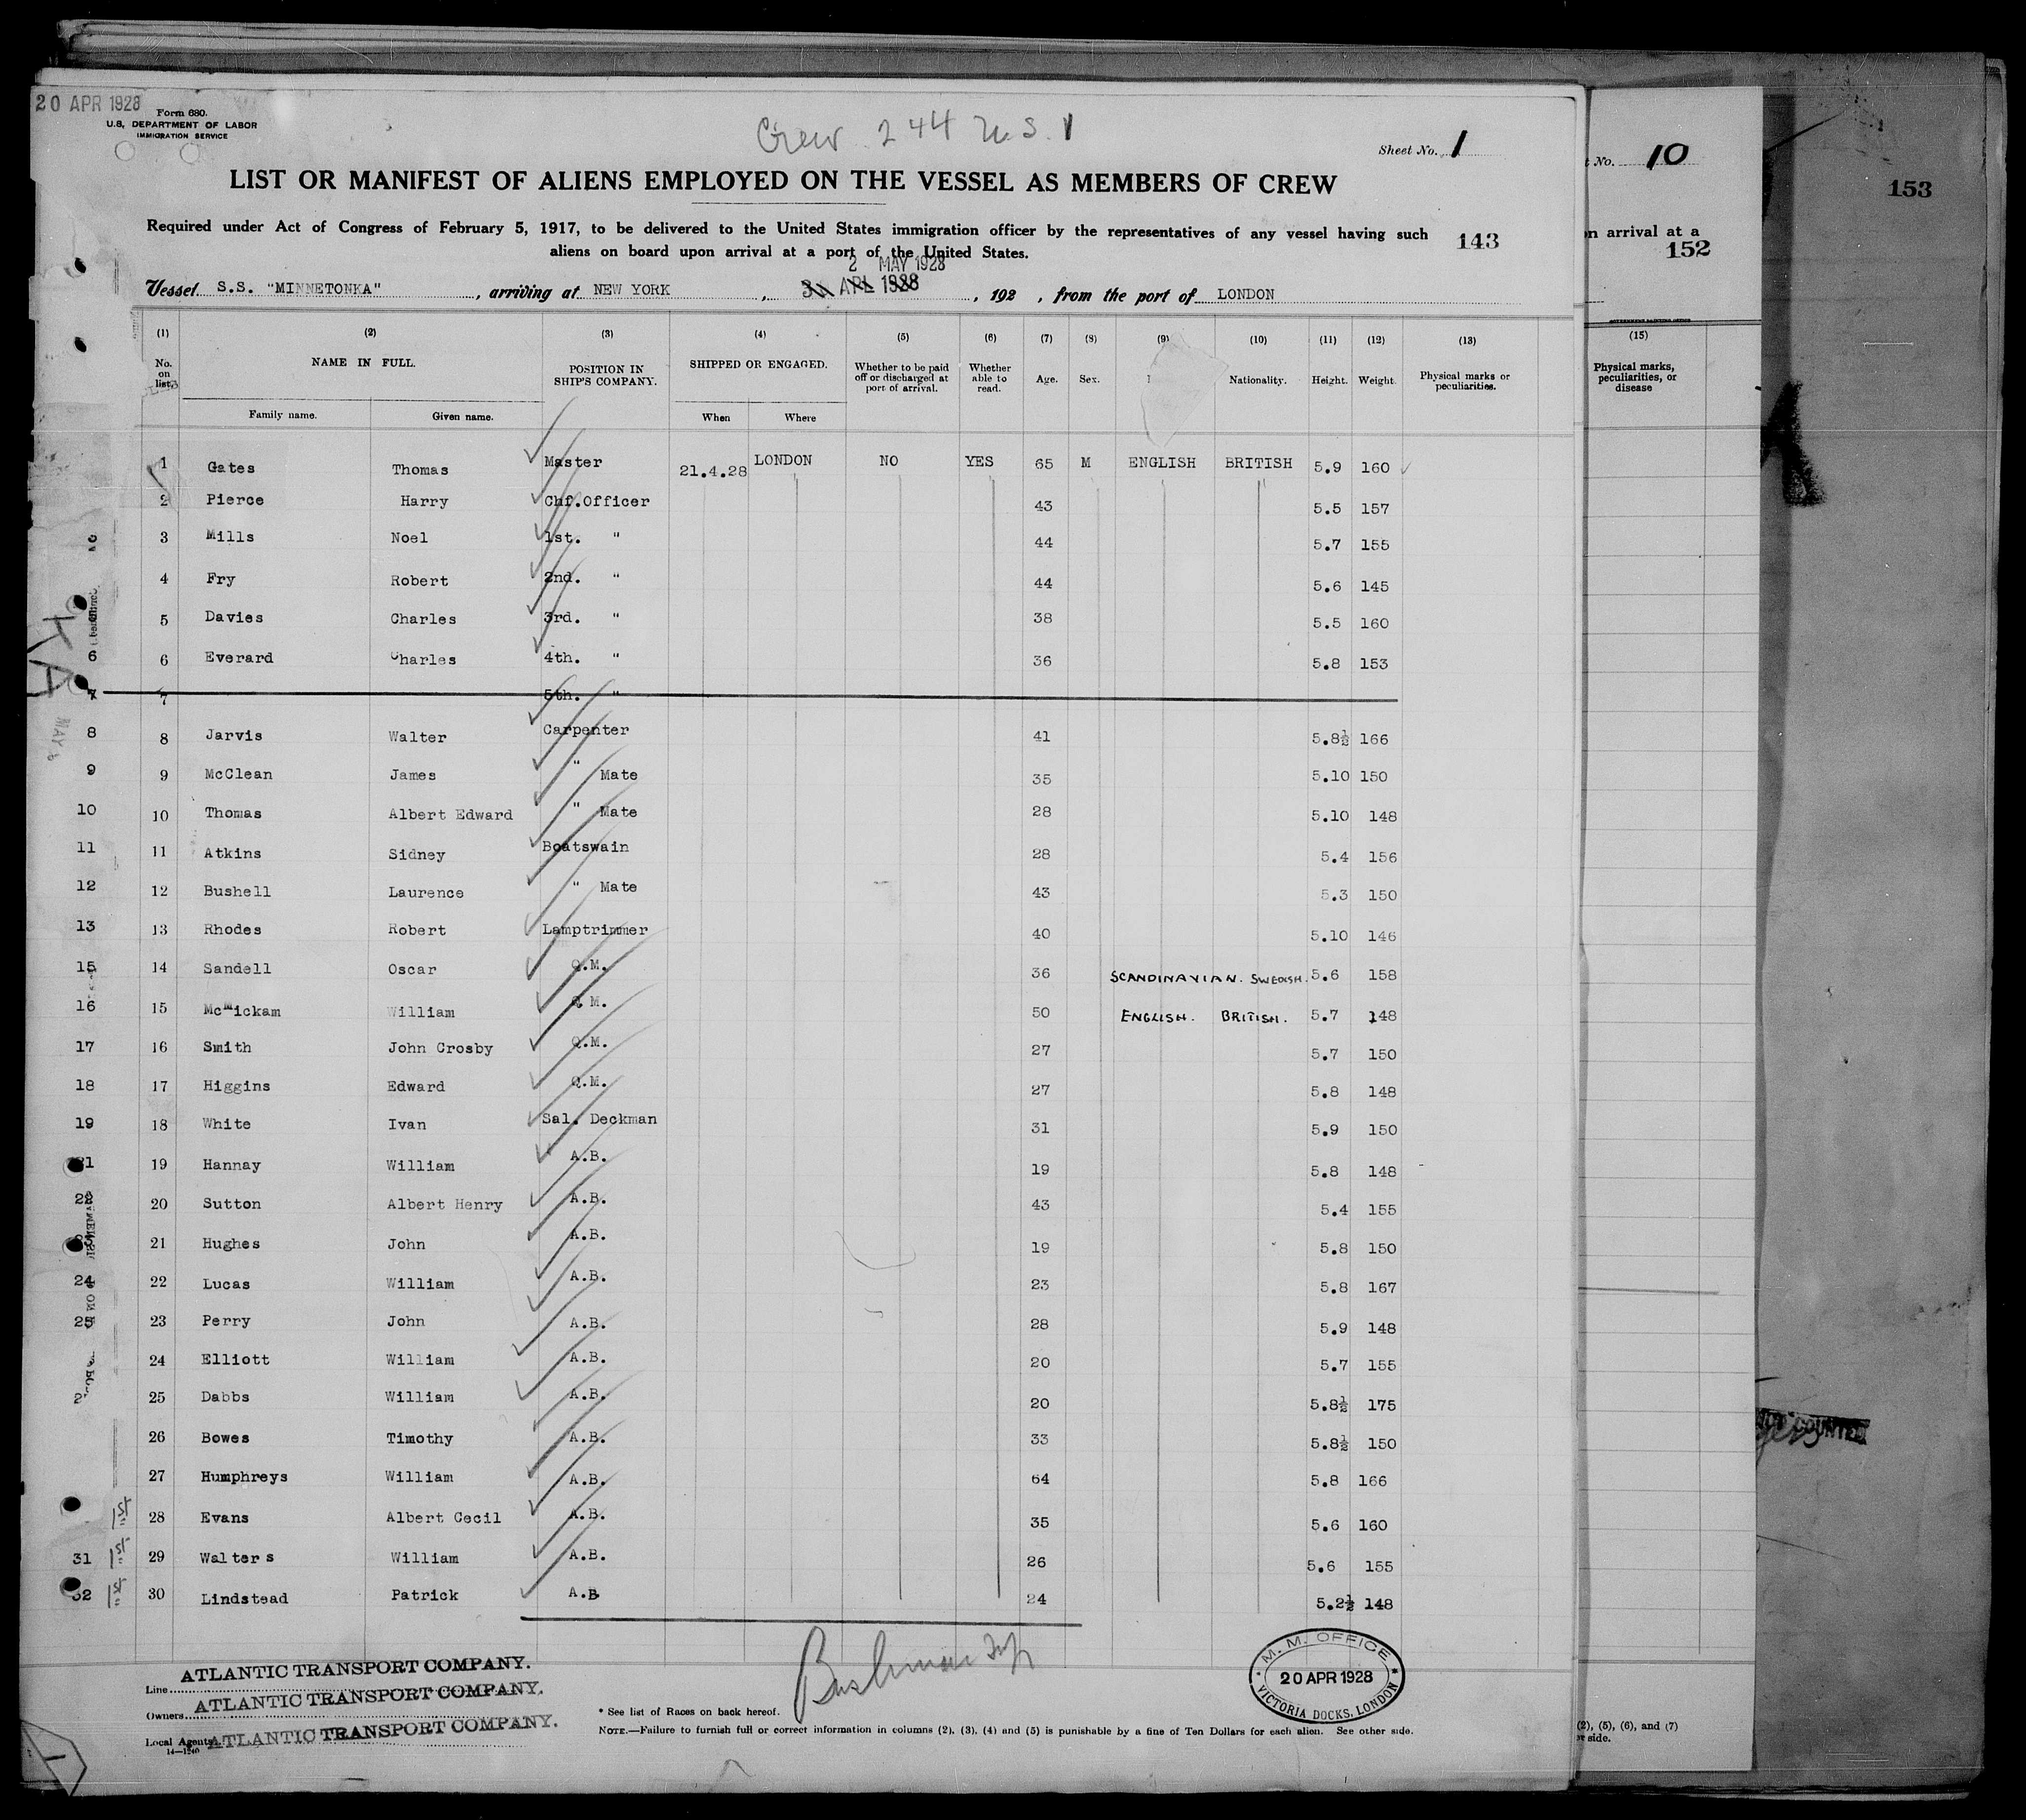 20 APR 1928
Form 680.
U.S. DEPARTMENT OF LABOR
IMMIGRATION SERVICE
Crew 244 U.S. 1
Sheet No. 1
LIST OR MANIFEST OF ALIENS EMPLOYED ON THE VESSEL AS MEMBERS OF CREW
Required under Act of Congress of February 5, 1917, to be delivered to the United States immigration officer by the representatives of any vessel having such
aliens on board upon arrival at a port of the United States.
143
2 MAY 1928
Vessel S.S. "MINNETONKA", arriving at NEW YORK, APL 1928, 192 , from the port of LONDON
(1) (2) (3) (4) (5) (6) (7) (8) (9) (10) (11) (12) (13)
No. on list. NAME IN FULL. POSITION IN SHIP'S COMPANY. SHIPPED OR ENGAGED. Whether to be paid off or discharged at port of arrival. Whether able to read. Age. Sex. Nationality. Height. Weight. Physical marks or peculiarities.
Family name. Given name. When Where
1 Gates Thomas Master 21.4.28 LONDON NO YES 65 M ENGLISH BRITISH 5.9 160
2 Pierce Harry Chf.Officer " " " " " 43 5.5 157
3 Mills Noel 1st. " 44 5.7 155
4 Fry Robert 2nd. " 44 5.6 145
5 Davies Charles 3rd. " 38 5.5 160
6 6 Everard Charles 4th. " 36 5.8 153
7 7 5th. "
8 8 Jarvis Walter Carpenter 41 5.8½ 166
9 9 McClean James " Mate 35 5.10 150
10 10 Thomas Albert Edward " Mate 28 5.10 148
11 11 Atkins Sidney Boatswain 28 5.4 156
12 12 Bushell Laurence " Mate 43 5.3 150
13 13 Rhodes Robert Lamptrimmer 40 5.10 146
15 14 Sandell Oscar Q.M. 36 SCANDINAVIAN. SWEDISH. 5.6 158
16 15 McMickam William Q.M. 50 ENGLISH. BRITISH. 5.7 148
17 16 Smith John Crosby Q.M. 27 5.7 150
18 17 Higgins Edward Q.M. 27 5.8 148
19 18 White Ivan Sal. Deckman 31 5.9 150
21 19 Hannay William A.B. 19 5.8 148
22 20 Sutton Albert Henry A.B. 43 5.4 155
23 21 Hughes John A.B. 19 5.8 150
24 22 Lucas William A.B. 23 5.8 167
25 23 Perry John A.B. 28 5.9 148
24 Elliott William A.B. 20 5.7 155
25 Dabbs William A.B. 20 5.8½ 175
26 Bowes Timothy A.B. 33 5.8½ 150
27 Humphreys William A.B. 64 5.8 166
1st 28 Evans Albert Cecil A.B. 35 5.6 160
31 1st 29 Walters William A.B. 26 5.6 155
32 1st 30 Lindstead Patrick A.B 24 5.2½ 148
Line ATLANTIC TRANSPORT COMPANY.
Owners ATLANTIC TRANSPORT COMPANY.
Local Agents ATLANTIC TRANSPORT COMPANY.
14—1240
* See list of Races on back hereof.
NOTE.—Failure to furnish full or correct information in columns (2), (3), (4) and (5) is punishable by a fine of Ten Dollars for each alien. See other side.
M. M. OFFICE
20 APR 1928
VICTORIA DOCKS, LONDON
No. 10
n arrival at a
152
(15)
Physical marks, peculiarities, or disease
(2), (5), (6), and (7)
side.
153
COUNTED